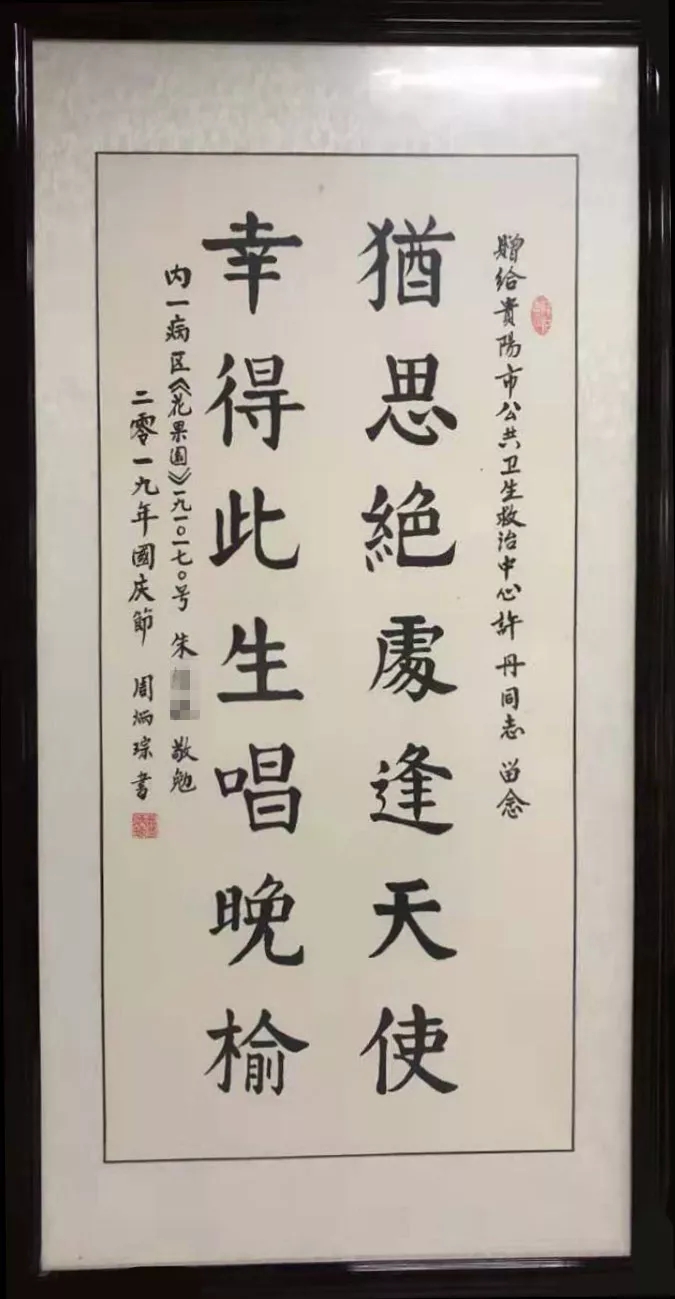 贈给貴陽市公共卫生救治中心許丹同志留念
猶思絕處逢天使
幸得此生唱晚榆
内一病区《花果園》一九一〇一七〇号 朱 敬勉
二零一九年國庆節 周炳琮書